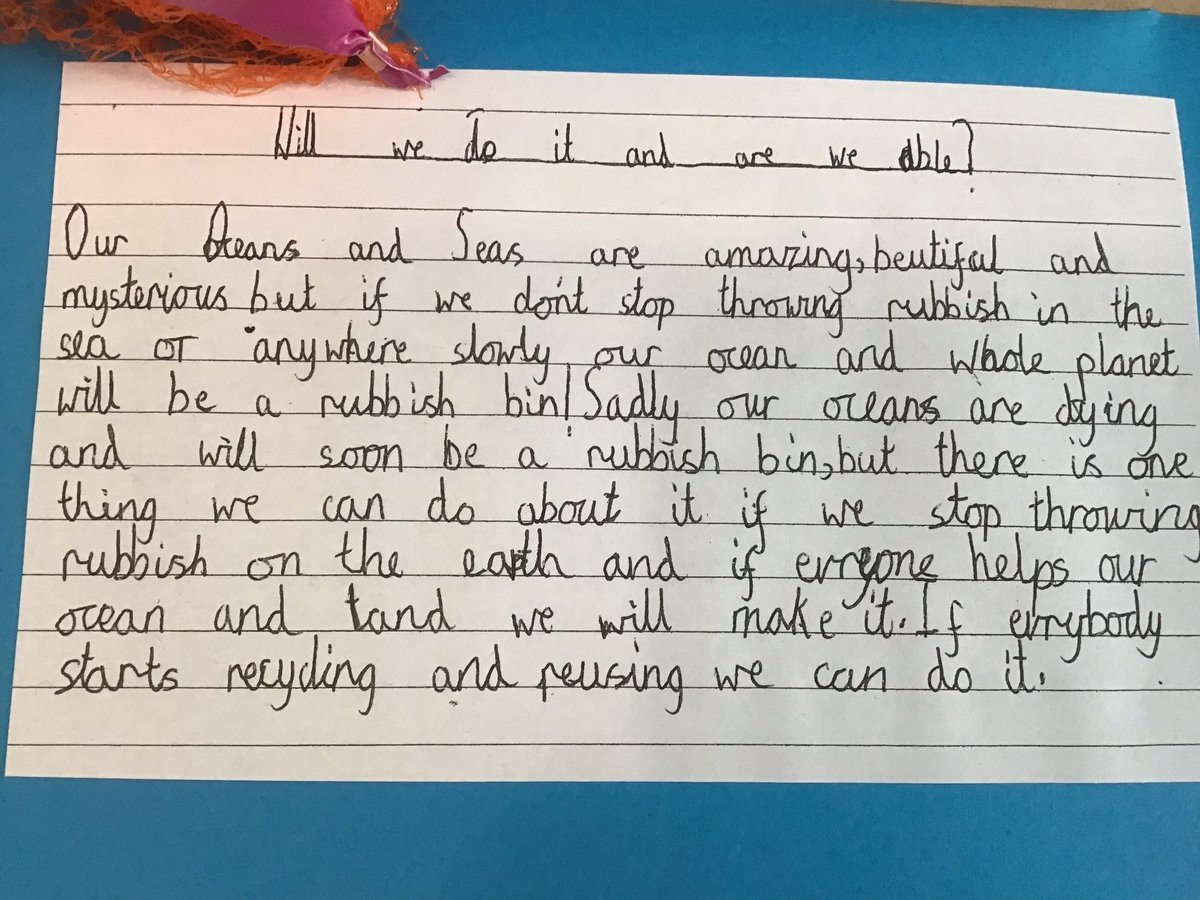 Will we do it and are we able?
Our Oceans and Seas are amazing, beutiful and
mysterious but if we don't stop throwing rubbish in the
sea or anywhere slowly our ocean and whole planet
will be a rubbish bin! Sadly our oceans are dying
and will soon be a rubbish bin, but there is one
thing we can do about it if we stop throwing
rubbish on the earth and if evryone helps our
ocean and land we will make it. If evrybody
starts recycling and reusing we can do it.